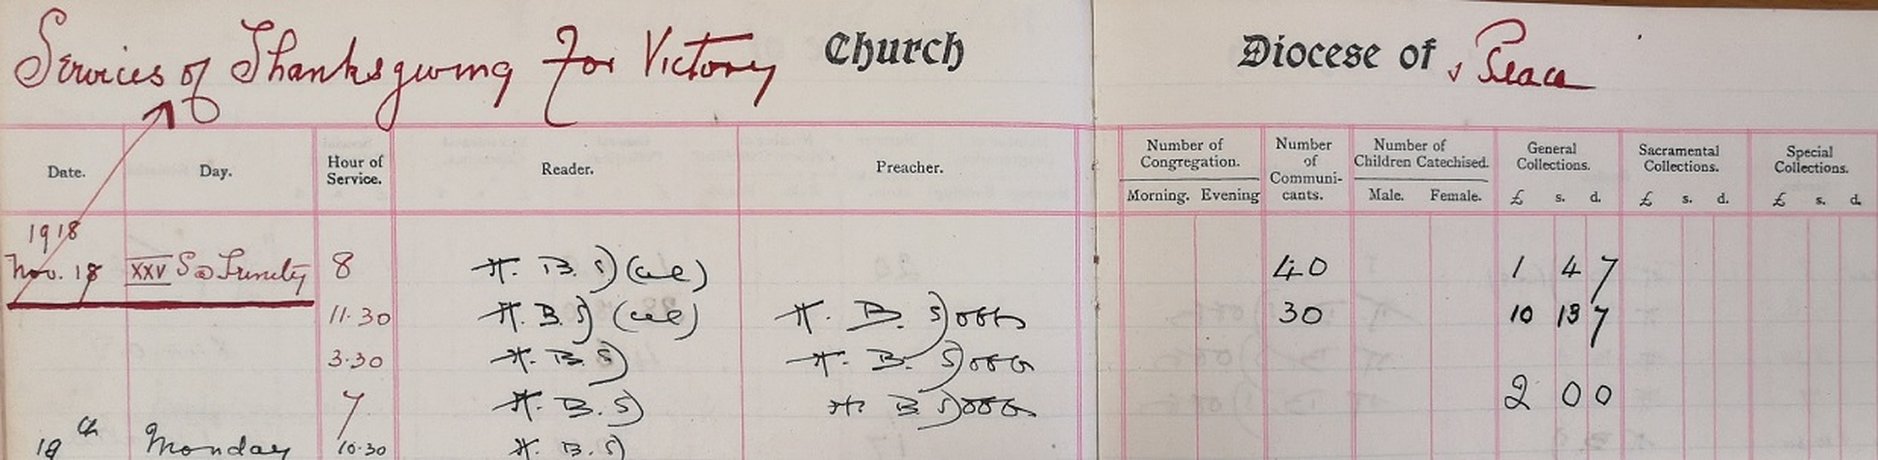 Services of Thanksgiving For Victory Church Diocese of & Peace
Date. Day. Hour of Service. Reader. Preacher. Number of Congregation. Morning. Evening Number of Communi-cants. Number of Children Catechised. Male. Female. General Collections. £ s. d. Sacramental Collections. £ s. d. Special Collections. £ s. d.
1918
Nov. 18 XXV S@Trinity 8 H. B. S (cel) 40 1 4 7
11.30 H. B. S (cel) H. B. Scott 30 10 13 7
3.30 H. B. S H. B. Scott
7 H. B. S H. B Scott 2 0 0
18th Monday 10.30 H. B. S